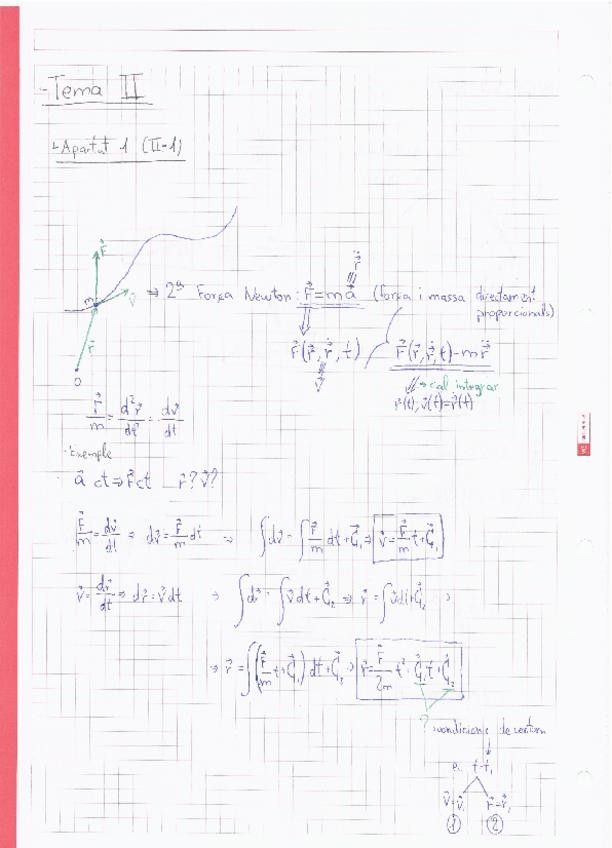 - Tema II
↳ Apartat 1 (II-1)
F⃗
m
v⃗
r⃗
O
⇒ 2ª Força Newton: F⃗ = m a⃗ (força i massa directament proporcionals)
r⃗̈
F⃗(r⃗, r⃗̇, t)
v⃗
F⃗(r⃗, r⃗̇, t) = m r⃗̈
⇓ → cal integrar
r⃗(t), v⃗(t) = r⃗̇(t)
F⃗/m = d²r⃗/dt² = dv⃗/dt
· Exemple
a⃗ ct ⇒ F⃗ ct r⃗? v⃗?
F⃗/m = dv⃗/dt ⇒ dv⃗ = F⃗/m dt ⇒ ∫dv⃗ = ∫F⃗/m dt + C⃗₁ ⇒ v⃗ = F⃗/m t + C⃗₁
v⃗ = dr⃗/dt ⇒ dr⃗ = v⃗dt ⇒ ∫dr⃗ = ∫v⃗dt + C⃗₂ ⇒ r⃗ = ∫v⃗dt + C⃗₂ ⇒
⇒ r⃗ = ∫(F⃗/m t + C⃗₁) dt + C⃗₂ ⇒ r⃗ = F⃗/2m t² + C⃗₁t + C⃗₂
? condicions de contorn
t = t₁
v⃗ = v⃗₁ r⃗ = r⃗₁
① ②